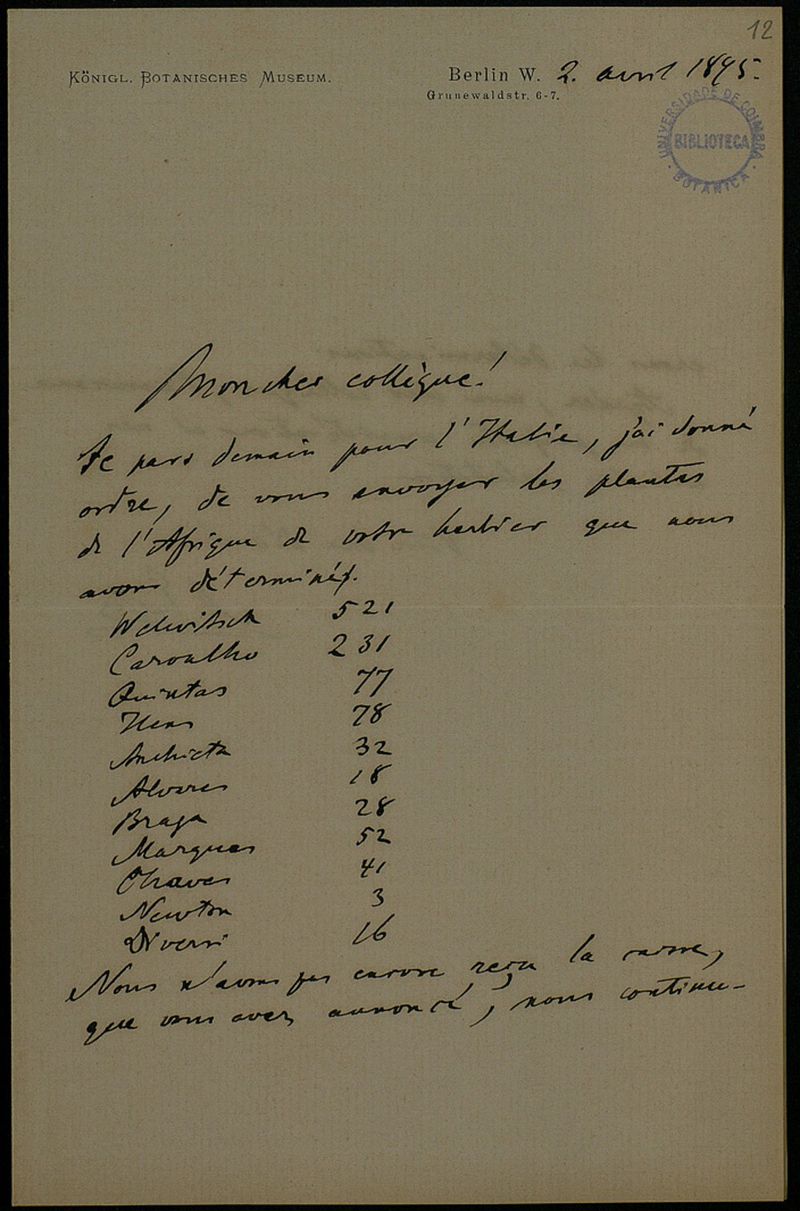 12
KÖNIGL. BOTANISCHES MUSEUM.
Berlin W. 2. avril 1895.
Grunewaldstr. 6-7.
UNIVERSIDADE DE COIMBRA
BIBLIOTECA
BOTANICA
Mon cher collègue!
Je pars demain pour l'Italie, j'ai donné
ordre, de vous envoyer les plantes
de l'Afrique de votre herbier que nous
avons déterminé.
Welwitsch 521
Carvalho 231
Quintas 77
Hens 78
Anchieta 32
Alvares 18
Braga 28
Marques 52
Chaves 41
Newton 3
Diversi 16
Nous n'avons pas encore reçu la caisse,
que vous avez annoncé, nous continue-